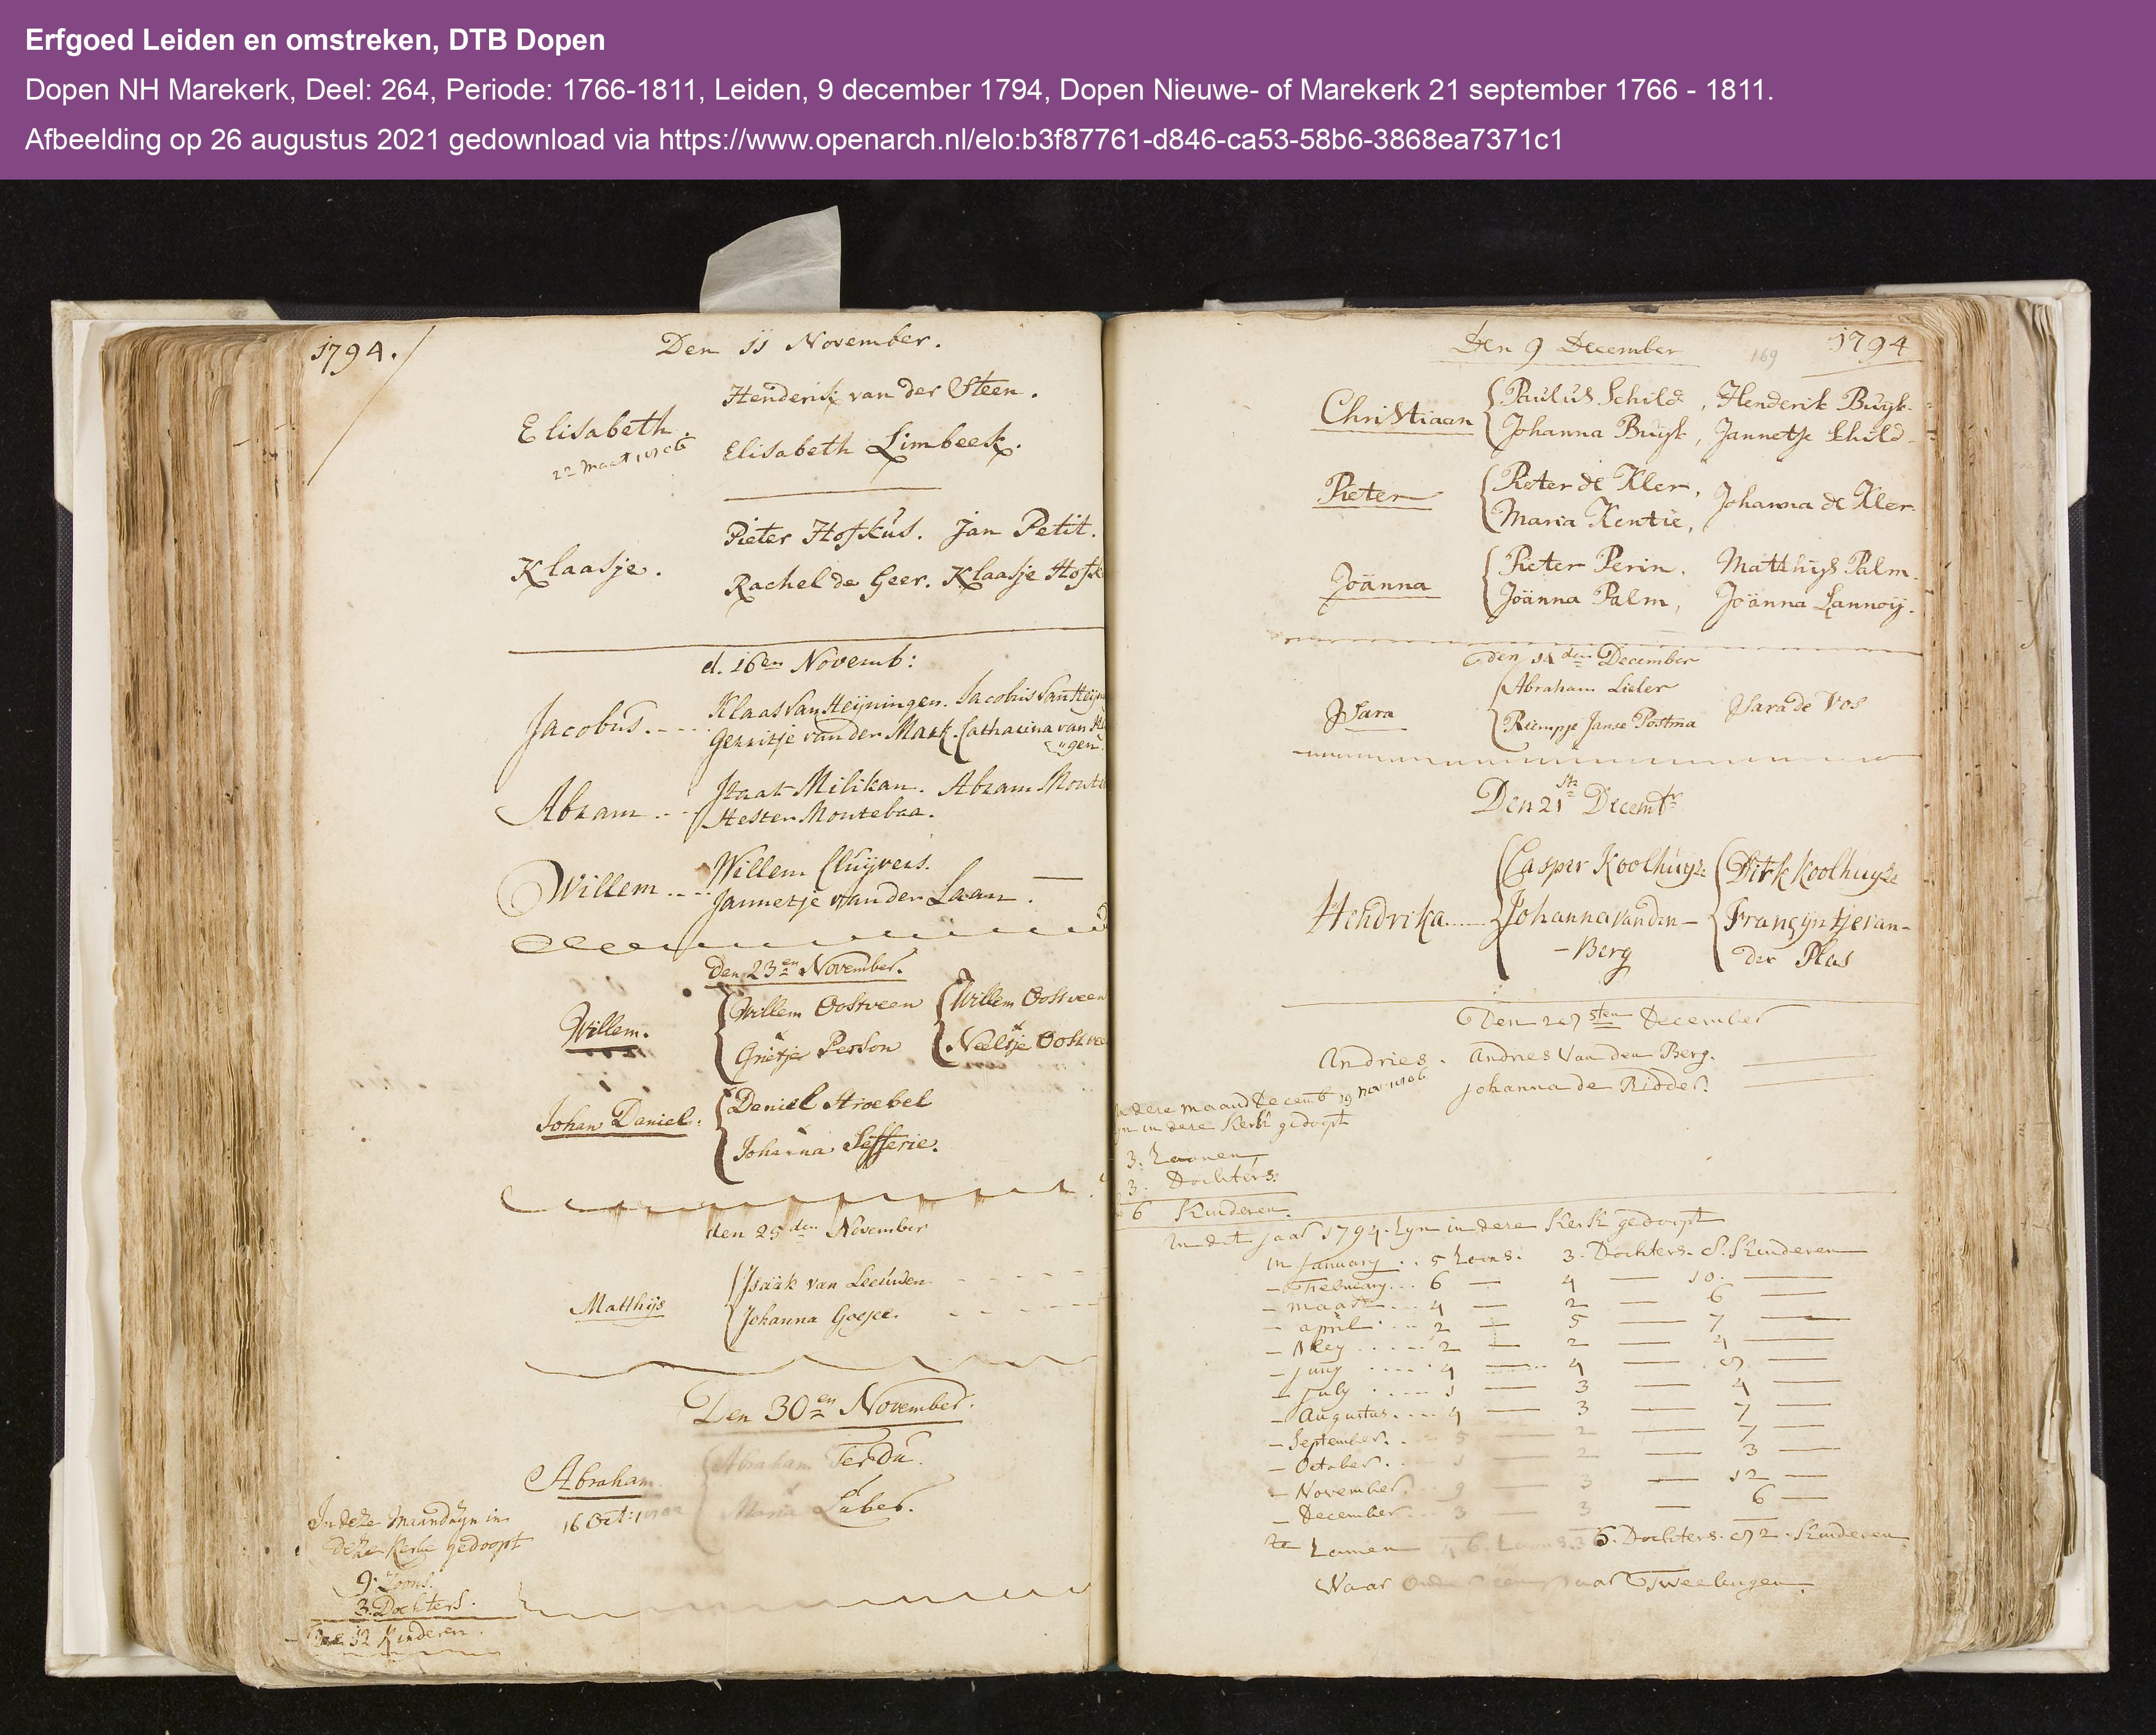 Erfgoed Leiden en omstreken, DTB Dopen
Dopen NH Marekerk, Deel: 264, Periode: 1766-1811, Leiden, 9 december 1794, Dopen Nieuwe- of Marekerk 21 september 1766 - 1811.
Afbeelding op 26 augustus 2021 gedownload via https://www.openarch.nl/elo:b3f87761-d846-ca53-58b6-3868ea7371c1
1794.
Den 11 November.
Henderik van der Steen.
Elisabeth.
Elisabeth Limbeek.
Pieter Hofkus. Jan Petit.
Klaasje.
Rachel de Geer. Klaasje Hofk
d. 16en Novemb:
Klaas van Heijningen. Jacobus van Heijn
Jacobus.
Gerritje van der Mark. Catharina van He
"gen.
Staat Milikan. Abram Monte
Abram
Hester Montebaa.
Willem Cluijvers.
Willem
Jannetje van der Laan.
Den 23en November.
Willem Oostveen Willem Oostveen
Willem.
Grietje Person Neeltje Oostvee
Daniel Stroebel
Johan Daniel.
Johanna Sefferie.
den 25den November
Isaäk van Leeuwen
Matthijs
Johanna Goejee.
Den 30en November.
Abraham Terdu.
Abraham
Maria Luber.
16 Oct:
In deze Maand zyn in
deze Kerke gedoopt
9. Zoons.
3. Dochters.
12 Kinderen.
Den 9 December
169
1794
Paulus Schild, Henderik Buyk
Christiaan
Johanna Buyk, Jannetje Schild
Pieter de Kler,
Pieter
Johanna de Kler
Maria Kentie,
Pieter Perin. Matthijs Palm.
Joänna
Joänna Palm, Joänna Lannoij.
den 14den December
Abraham Lieler
Sara
Sara de Vos
Riempje Janse Postma
Den 21ste Decembr
Casper Koolhuyze Dirk Koolhuyze
Hendrika
Johanna van den - Francyntje van -
- Berg
der Plas
Den 28sten December
Andries. Andries van den Berg.
Johanna de Ridder.
deze maand Decemb
in deze Kerk gedoopt
3. Zoonen
3. Dochters.
6 Kinderen.
In dit jaar 1794. zyn in deze Kerk gedoopt
In January .. 5 Zoons. 3. Dochters. 8. Kinderen
- February... 6 — 4 — 10. —
- maart... 4 — 2 — 6 —
- april.... 2 — 5 — 7 —
- Mey..... 2 — 2 — 4 —
- Juny..... 4 — 4 — 8 —
- July..... 1 — 3 — 4 —
- Augustus.... 4 — 3 — 7 —
- September... 5 — 2 — 7 —
- October.. 1 — 2 — 3 —
- November. 9 — 3 — 12 —
- December... 3 — 3 — 6 —
te Zamen 46. Zoons. 36. Dochters. 82. Kinderen
Waar onder een paar Tweelingen.